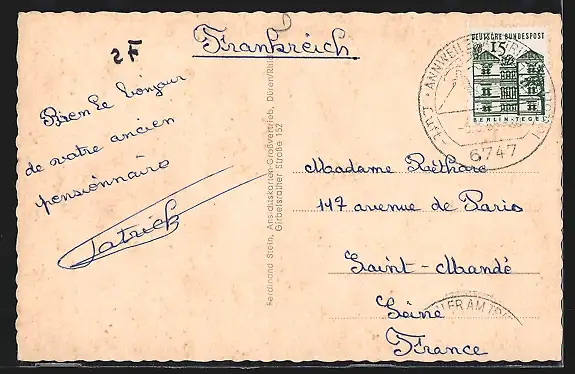 2F
Frankreich
DEUTSCHE BUNDESPOST
15
BERLIN-TEGEL
6747
Bien le bonjour
de votre ancien
pensionnaire
Patrick
Ferdinand Stein, Ansichtskarten-Großvertrieb, Düren/Rhld.
Girbelsrather Straße 152
Madame Réthoré
117 avenue de Paris
Saint-Mandé
Seine
France